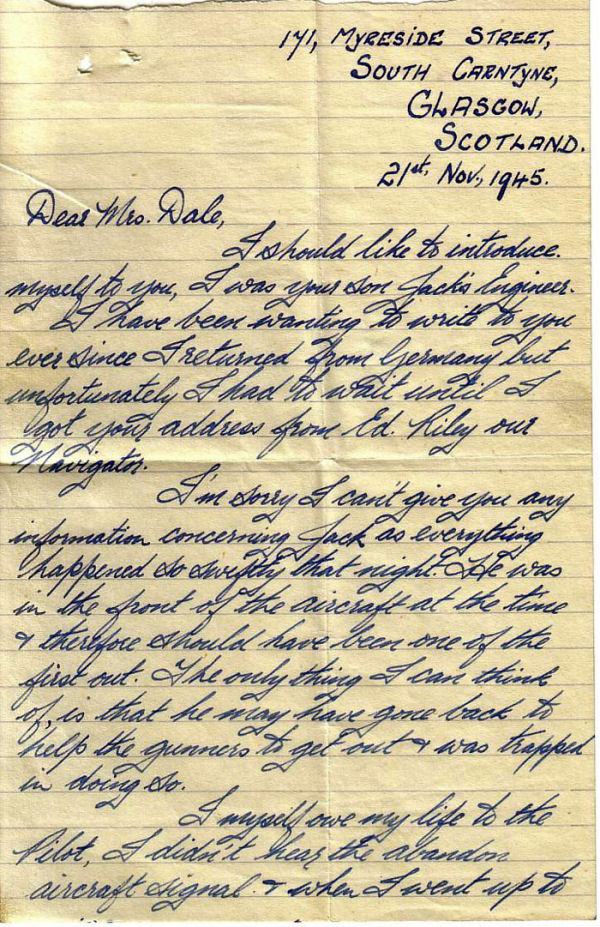 171, MYRESIDE STREET,
SOUTH CARNTYNE,
GLASGOW,
SCOTLAND.
21st, Nov., 1945.
Dear Mrs. Dale,
I should like to introduce
myself to you, I was your son Jack's Engineer.
I have been wanting to write to you
ever since I returned from Germany but
unfortunately I had to wait until I
got your address from Ed. Riley our
Navigator.
I'm sorry I can't give you any
information concerning Jack as everything
happened so swiftly that night. He was
in the front of the aircraft at the time
& therefore should have been one of the
first out. The only thing I can think
of, is that he may have gone back to
help the gunners to get out & was trapped
in doing so.
I myself owe my life to the
Pilot, I didn't hear the abandon
aircraft signal. & when I went up to